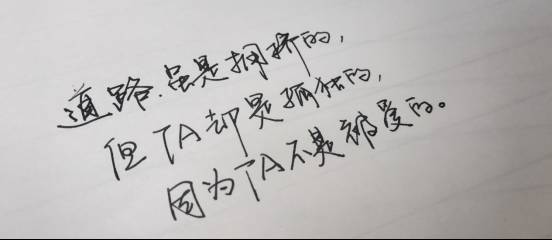 道路虽是拥挤的,
但TA却是孤独的,
因为TA不是被爱的。